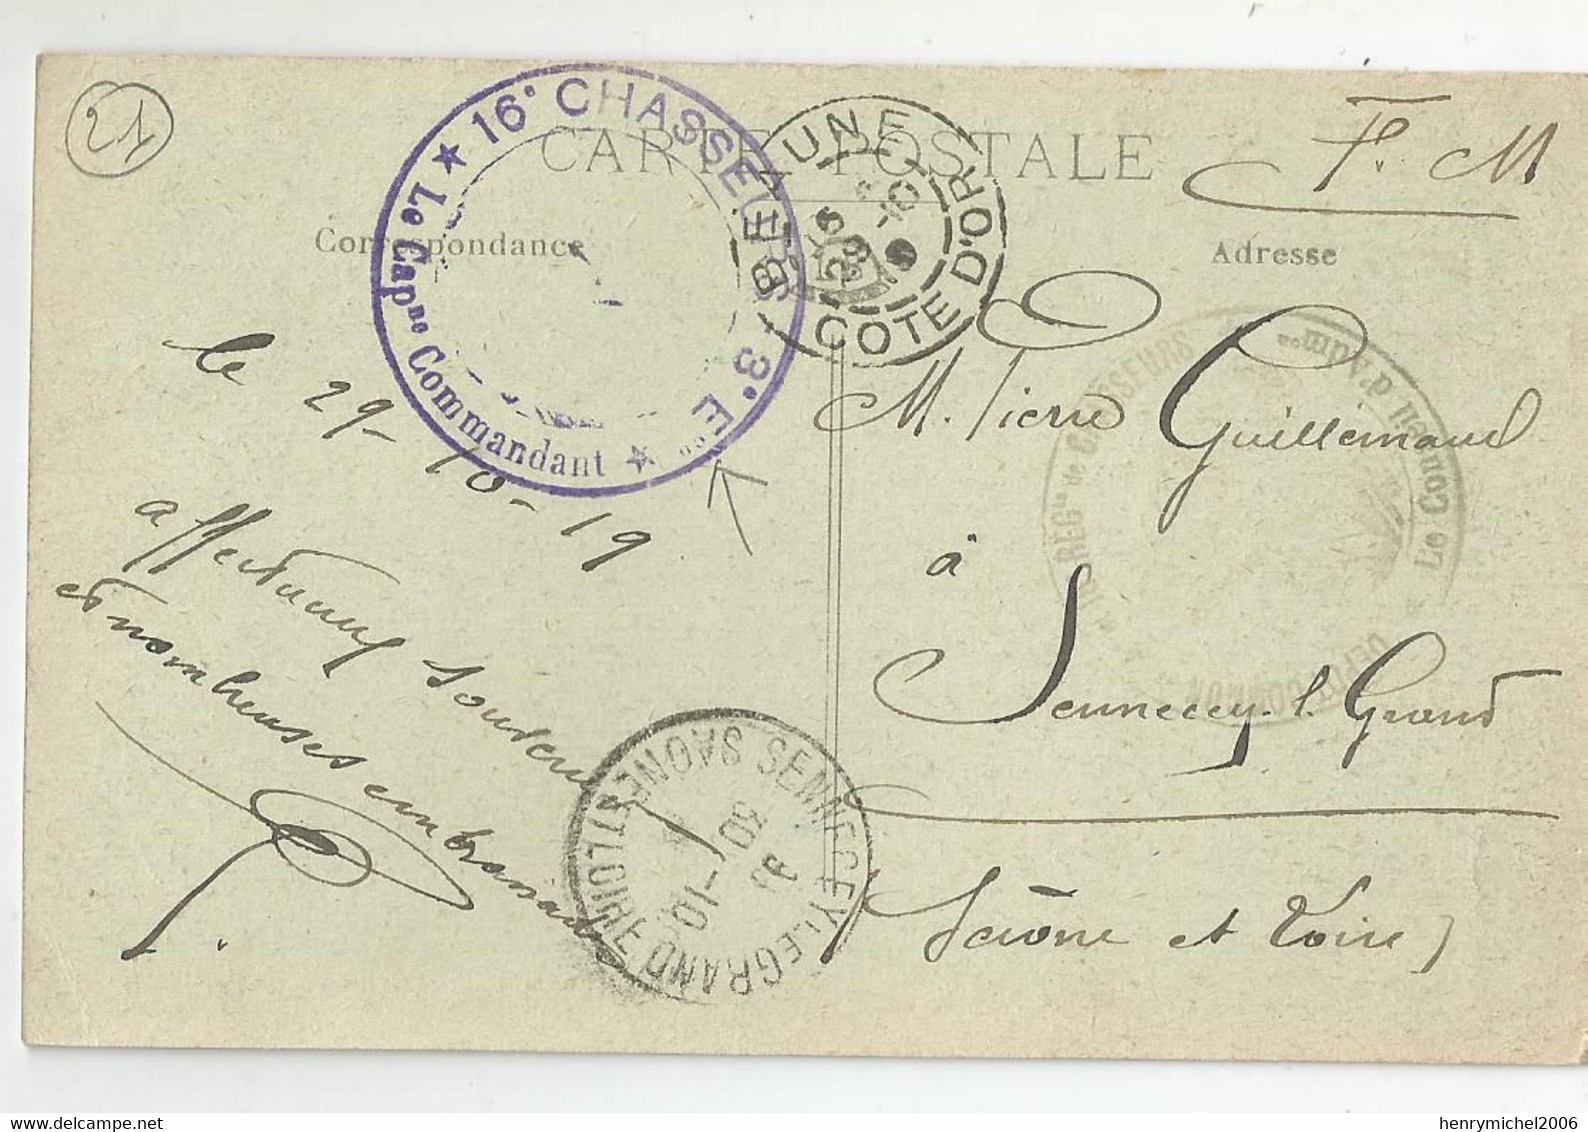 21
CARTE POSTALE
F. M
Correspondance
Adresse
★ 16e CHASSEURS - 3e Eon ★
Le Capne Commandant
BEAUNE
28 -10
COTE D'OR
le 29-10-19
affectueux souvenirs
et nombreuses embrassades
M. Pierre Guillemaud
à
Sennecey-l. Grand
(Saône et Loire)
REGts de CHASSEURS
Le Conseil d'Admon
DEPOT COMMUN
SENNECEY-LE GRAND
30 -10
SAONE ET LOIRE
henrymichel2006